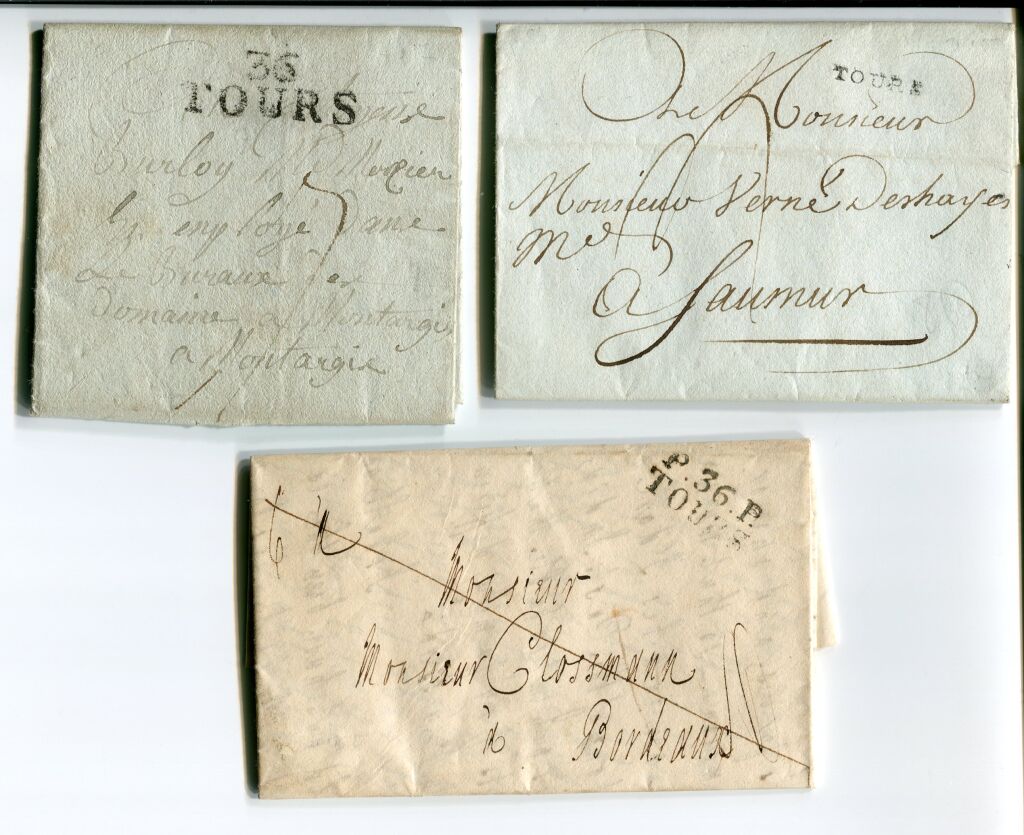 36
TOURS
employé Dans
Buraux des
Domaine a Montargis
a Montargis
TOURS
Monsieur
Monsieur Verné Deshayes
Md
A Saumur
P.36.P.
TOURS
Monsieur
Monsieur Clossmann
à Bordeaux